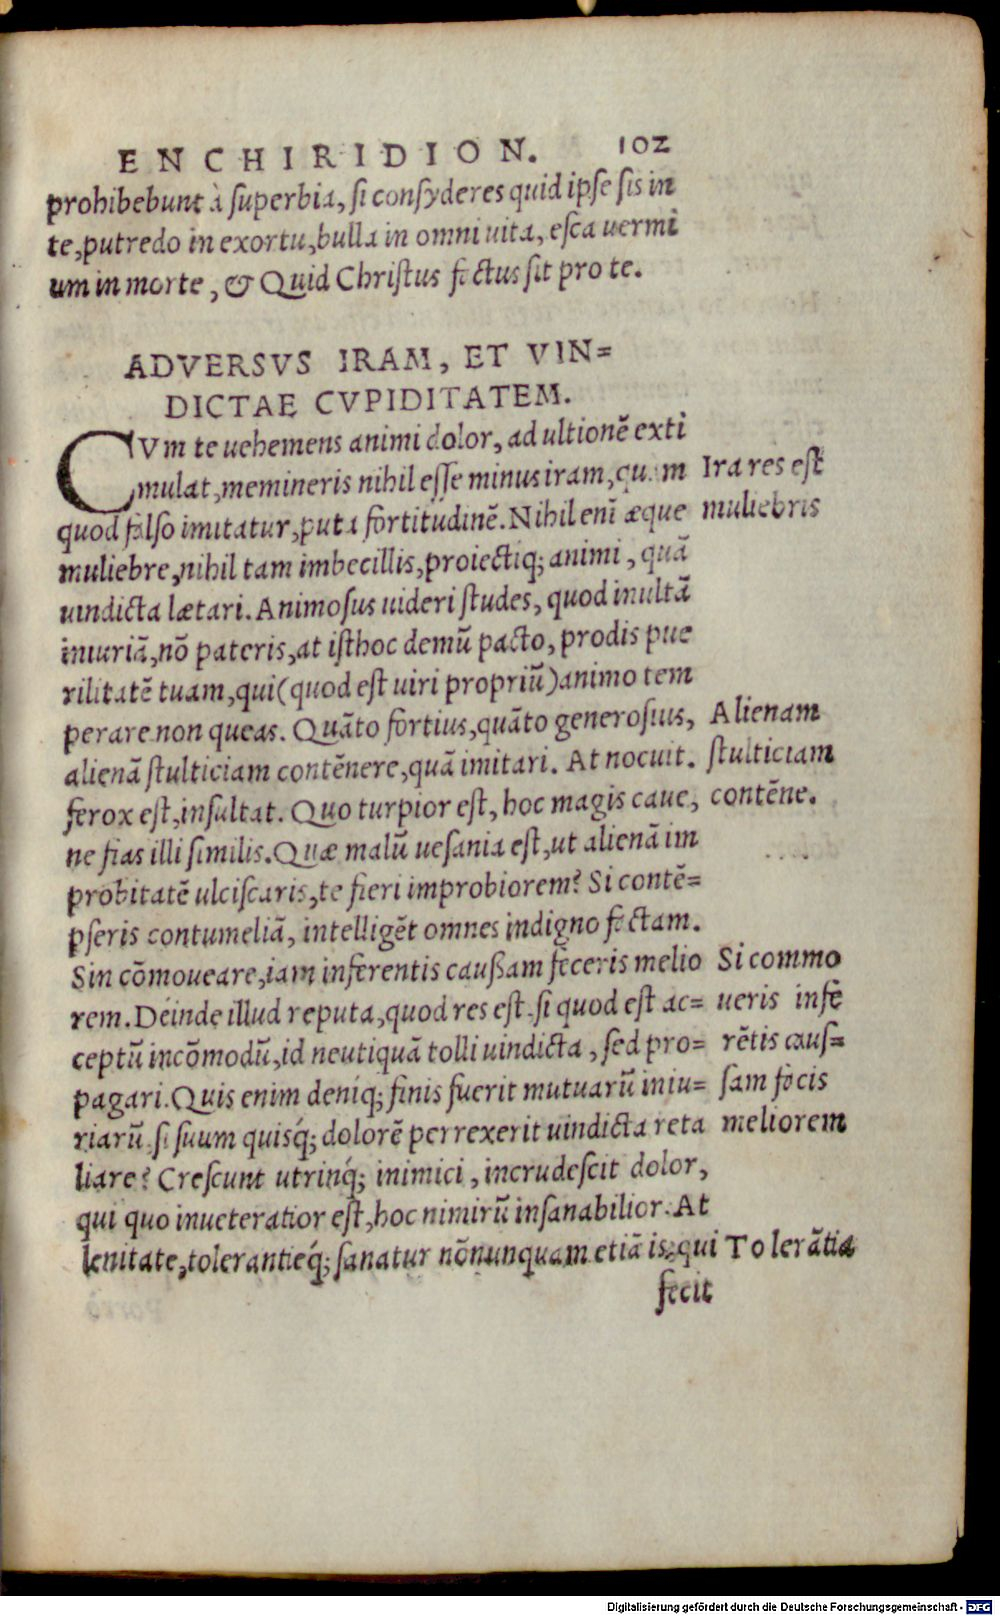 ENCHIRIDION. 102
prohibebunt à superbia, si consyderes quid ipse sis in
te, putredo in exortu, bulla in omni uita, esca uermi
um in morte, & Quid Christus factus sit pro te.
ADVERSVS IRAM, ET VIN=
DICTAE CVPIDITATEM.
CVm te uehemens animi dolor, ad ultionē exti
mulat, memineris nihil esse minus iram, quam
Ira res est
quod falso imitatur, puta fortitudinē. Nihil enī æque
muliebris
muliebre, nihil tam imbecillis, proiectiq; animi, quā
uindicta lætari. Animosus uideri studes, quod inultā
iniuriā, nō pateris, at isthoc demū pacto, prodis pue
rilitatē tuam, qui (quod est uiri propriū) animo tem
perare non queas. Quāto fortius, quāto generosius,
Alienam
alienā stulticiam contēnere, quā imitari. At nocuit.
stulticiam
ferox est, insultat. Quo turpior est, hoc magis caue,
contēne.
ne fias illi similis. Quæ malū uesania est, ut alienā im
probitatē ulciscaris, te fieri improbiorem? Si contē=
pseris contumeliā, intelligēt omnes indigno factam.
Sin cōmoueare, iam inferentis caußam feceris melio
Si commo
rem. Deinde illud reputa, quod res est. si quod est ac=
ueris infe
ceptū incōmodū, id neutiquā tolli uindicta, sed pro=
rētis caus=
pagari. Quis enim deniq; finis fuerit mutuarū iniu=
sam facis
riarū. si suum quisq́; dolorē perrexerit uindicta reta
meliorem
liare? Crescunt utrinq́; inimici, incrudescit dolor,
qui quo inueteratior est, hoc nimirū insanabilior. At
lenitate, tolerantieq́; sanatur nōnunquam etiā is, qui
Tolerātia
fecit
Digitalisierung gefördert durch die Deutsche Forschungsgemeinschaft - DFG